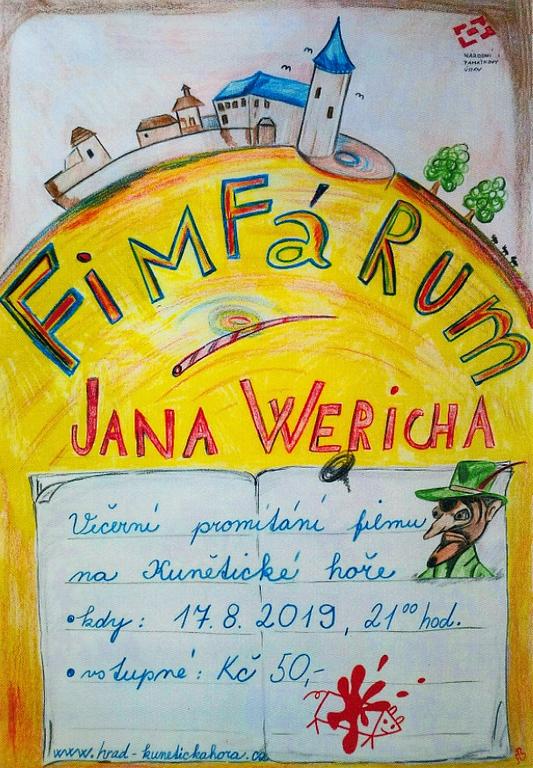 NÁRODNÍ
PAMÁTKOVÝ
ÚSTAV
FiMFáRUM
JANA WERICHA
Večerní promítání filmu
na Kunětické hoře
•kdy: 17.8. 2019, 21⁰⁰ hod.
•vstupné: Kč 50,-
www.hrad-kunetickahora.cz